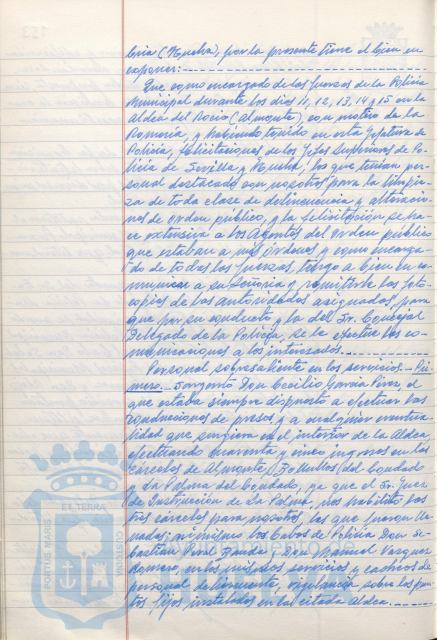 bria (Huelva), por la presente tiene el bien en
exponer:
Que como encargado de las fuerzas de la Policía
Municipal durante los días 11, 12, 13, 14 y 15 en la
Aldea del Rocío (Almonte), con motivo de la
Romería, y habiendo tenido en esta Jefatura de
Policía, felicitaciones de los Jefes Superiores de Po-
licía de Sevilla y Huelva, los que tenían per-
sonal destacado con nosotros para la limpie-
za de toda clase de delincuencia y alteracio-
nes de orden público, y la felicitación se ha-
ce extensiva a los Agentes del Orden público
que estaban a mis órdenes y como encarga-
do de todas las fuerzas, tengo a bien en co-
municar a su Señoría y remitirle las foto-
copias de las autoridades asignadas, para
que por su conducto y la del Sr. Concejal
Delegado de la Policía, se le efectue las co-
municaciones a los interesados.
Personal sobresaliente en los servicios.- Pri-
mero.- Sargento Don Cecilio García Pérez, el
que estaba siempre dispuesto a efectuar las
conducciones de presos y a cualquier eventua-
lidad que surgiera en el interior de la Aldea,
efectuando cuarenta y cinco ingresos en las
cárceles de Almonte, Bollullos del Condado
y La Palma del Condado, ya que el Sr. Juez
de Instrucción de La Palma, nos habilitó las
tres cárceles para nosotros, las que fueron lle-
nadas; así mismo los Cabos de Policía Don Se-
bastián Don Manuel Vazquez
Romero, en los mismos servicios y cacheos de
personal delincuente, vigilancia sobre los pun-
tos fijos instalados en la citada Aldea.
PORTUS MARIS
ET TERRA
CUSTODIA